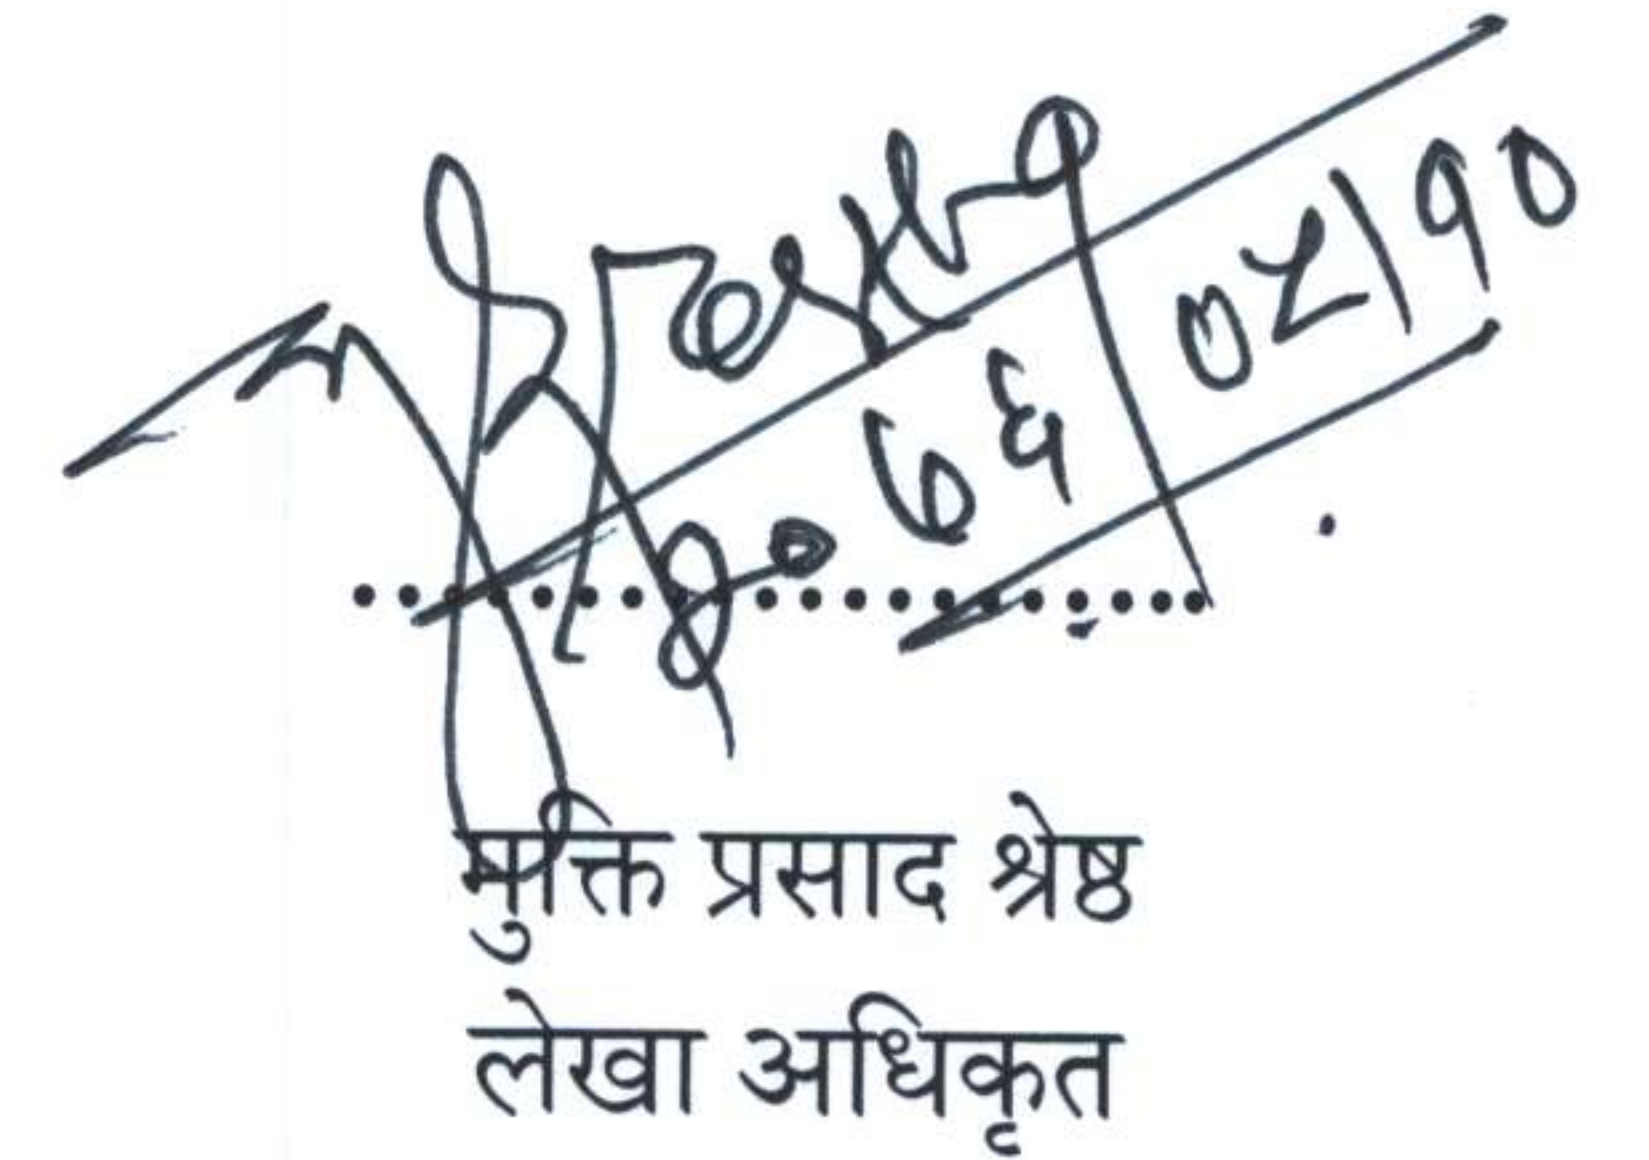 २०७६ ०५।१०
मुक्ति प्रसाद श्रेष्ठ
लेखा अधिकृत